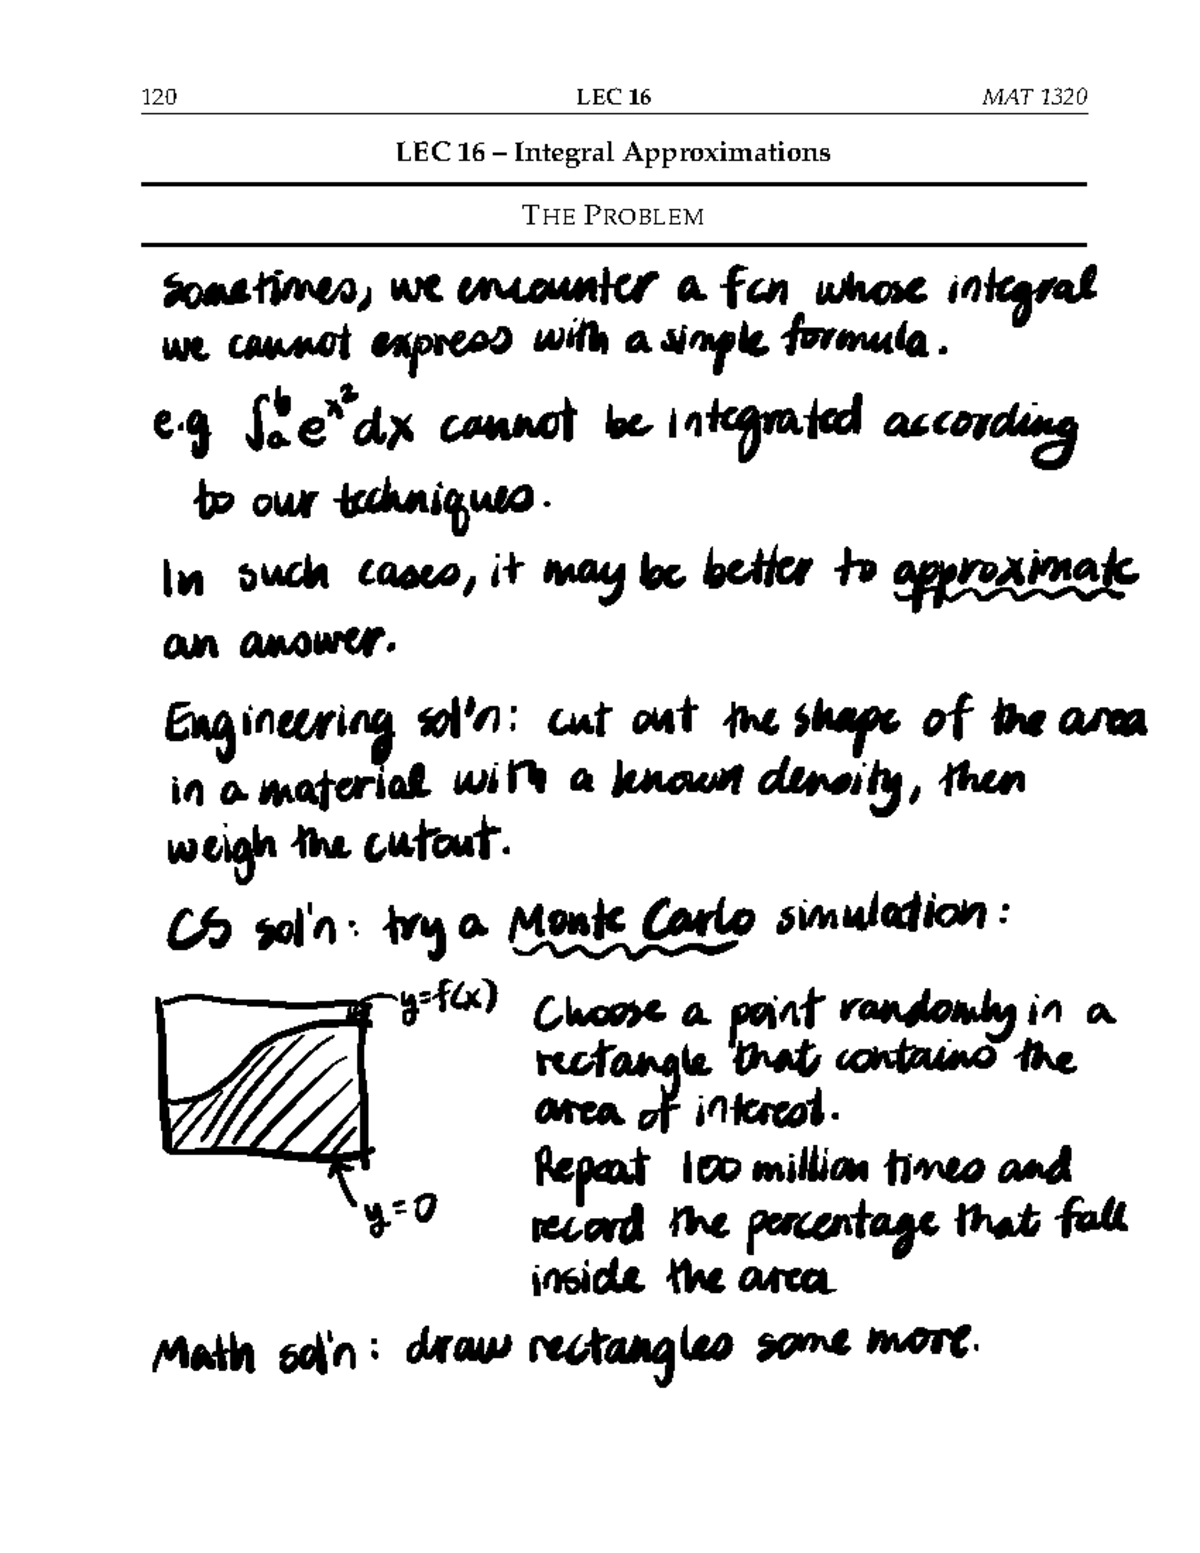 120 LEC 16 MAT 1320
LEC 16 – Integral Approximations
THE PROBLEM
Sometimes, we encounter a fcn whose integral
we cannot express with a simple formula.
e.g ∫ₐᵇ eˣ² dx cannot be integrated according
to our techniques.
In such cases, it may be better to approximate
an answer.
Engineering sol'n: cut out the shape of the area
in a material with a known density, then
weigh the cutout.
CS sol'n: try a Monte Carlo simulation:
y=f(x)
y=0
Choose a point randomly in a
rectangle that contains the
area of interest.
Repeat 100 million times and
record the percentage that fall
inside the area
Math sol'n: draw rectangles some more.